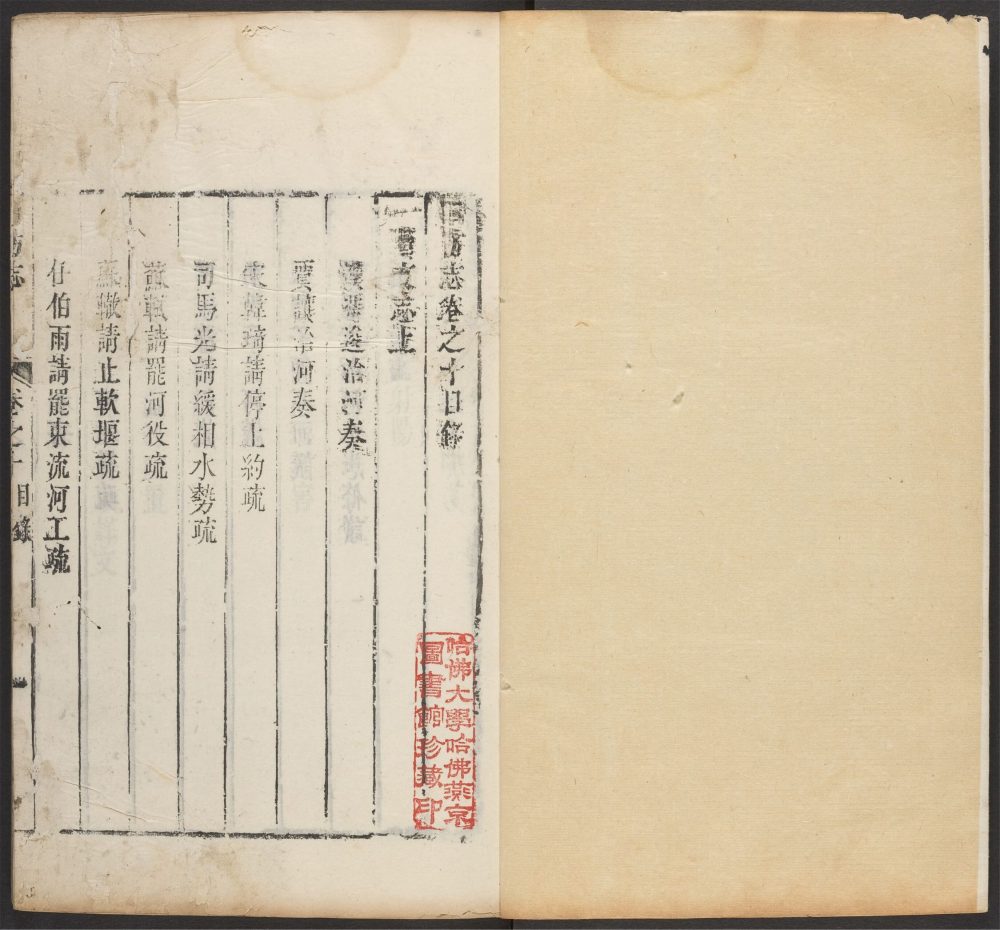 防志卷之十目錄
藝文志上
漢馮逡治河奏
賈讓治河奏
宋韓琦請停止約疏
司馬光請緩相水勢疏
蘇軾請罷河役疏
蘇轍請止軟堰疏
任伯雨請罷東流河工疏
防志 卷之十目錄 一
哈佛大學哈佛燕京
圖書館珍藏印